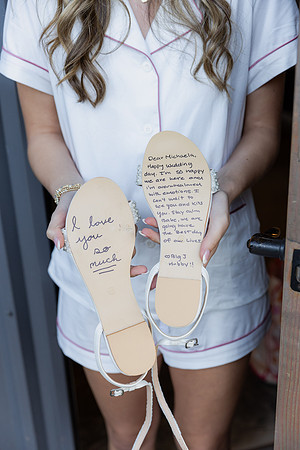 I love
you
so
much
Dear Michaela,
Happy Wedding
day. I'm so happy
we are here and
i'm overwhelmed
with emotions. I
can't wait to
see you and kiss
you. Stay calm
babe, we are
going have
the "Best day"
of our lives
Hubby!!